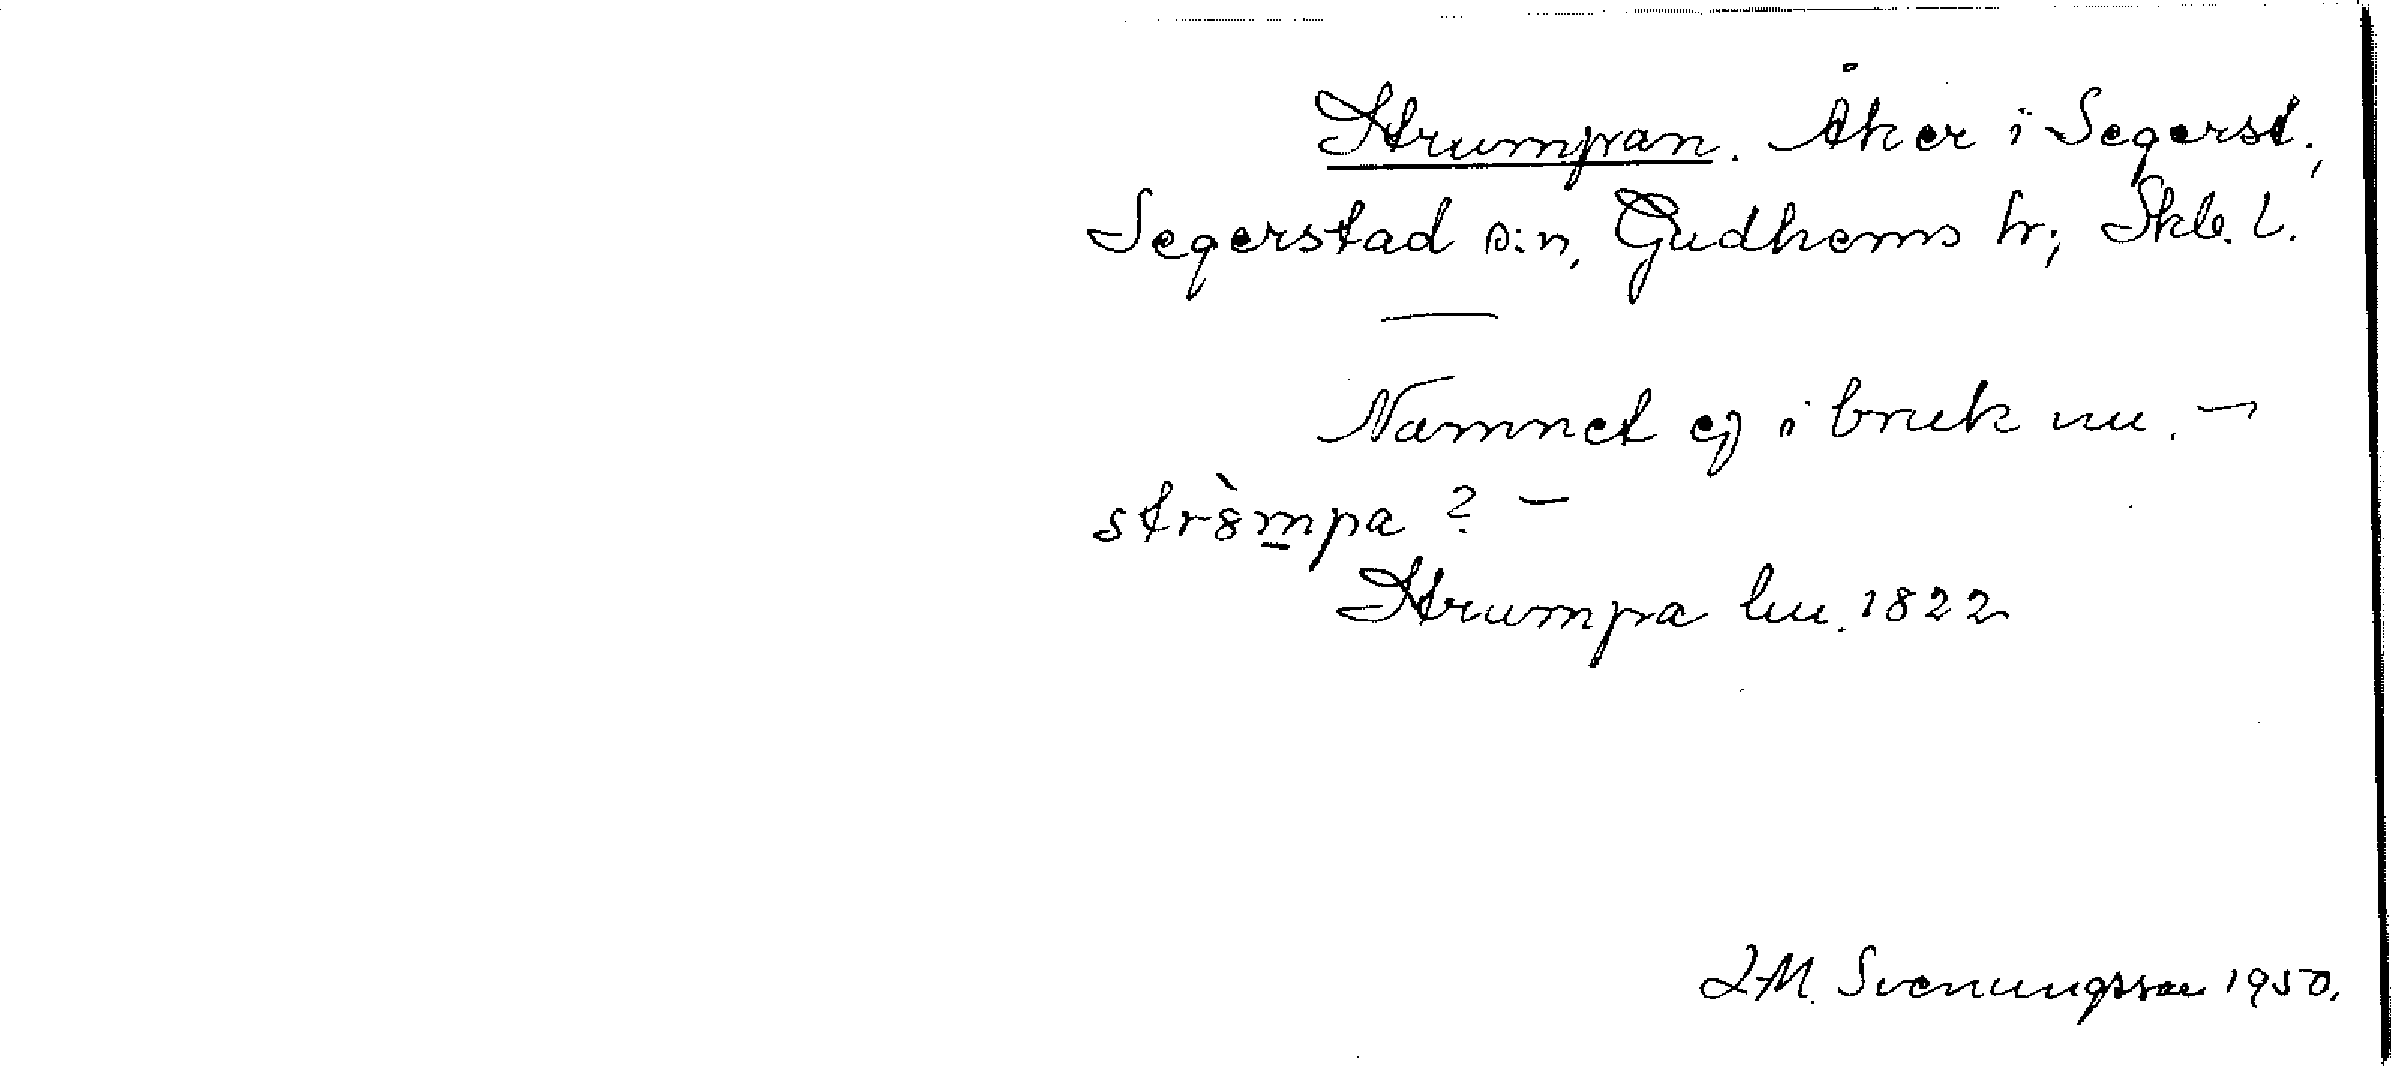 Strumpan. Åker i Segerst.,
Segerstad s:n, Gudhems hr, Skb. l.
Namnet ej i bruk nu. –
str8̀mpa ? –
Strumpa lu. 1822
Svenungsson 1950.